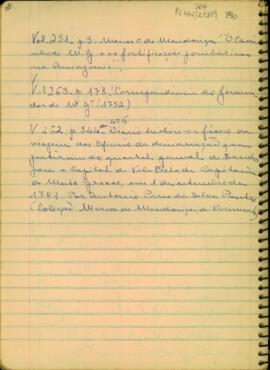 564
780
Vol. 251. p 3. Marcos C de Mendonça "O Cami
nho do M. G e as fortificações pombalinas
na Amazônia.
V 1253. p 178. (Correspondência do governa
dor de Mº Gº (1752)
405
V 252. p 344 Diário histórico e físico da
viagem dos oficiais da demarcação que
partiram do quartel general de Barcelos
para a capital de Vila Bela da Capitania
de Mato Grosso, em 1 de setembro de
1781. Por Antonio Pires da Silva Pontes
(Coleção Marcos de Mendonça,